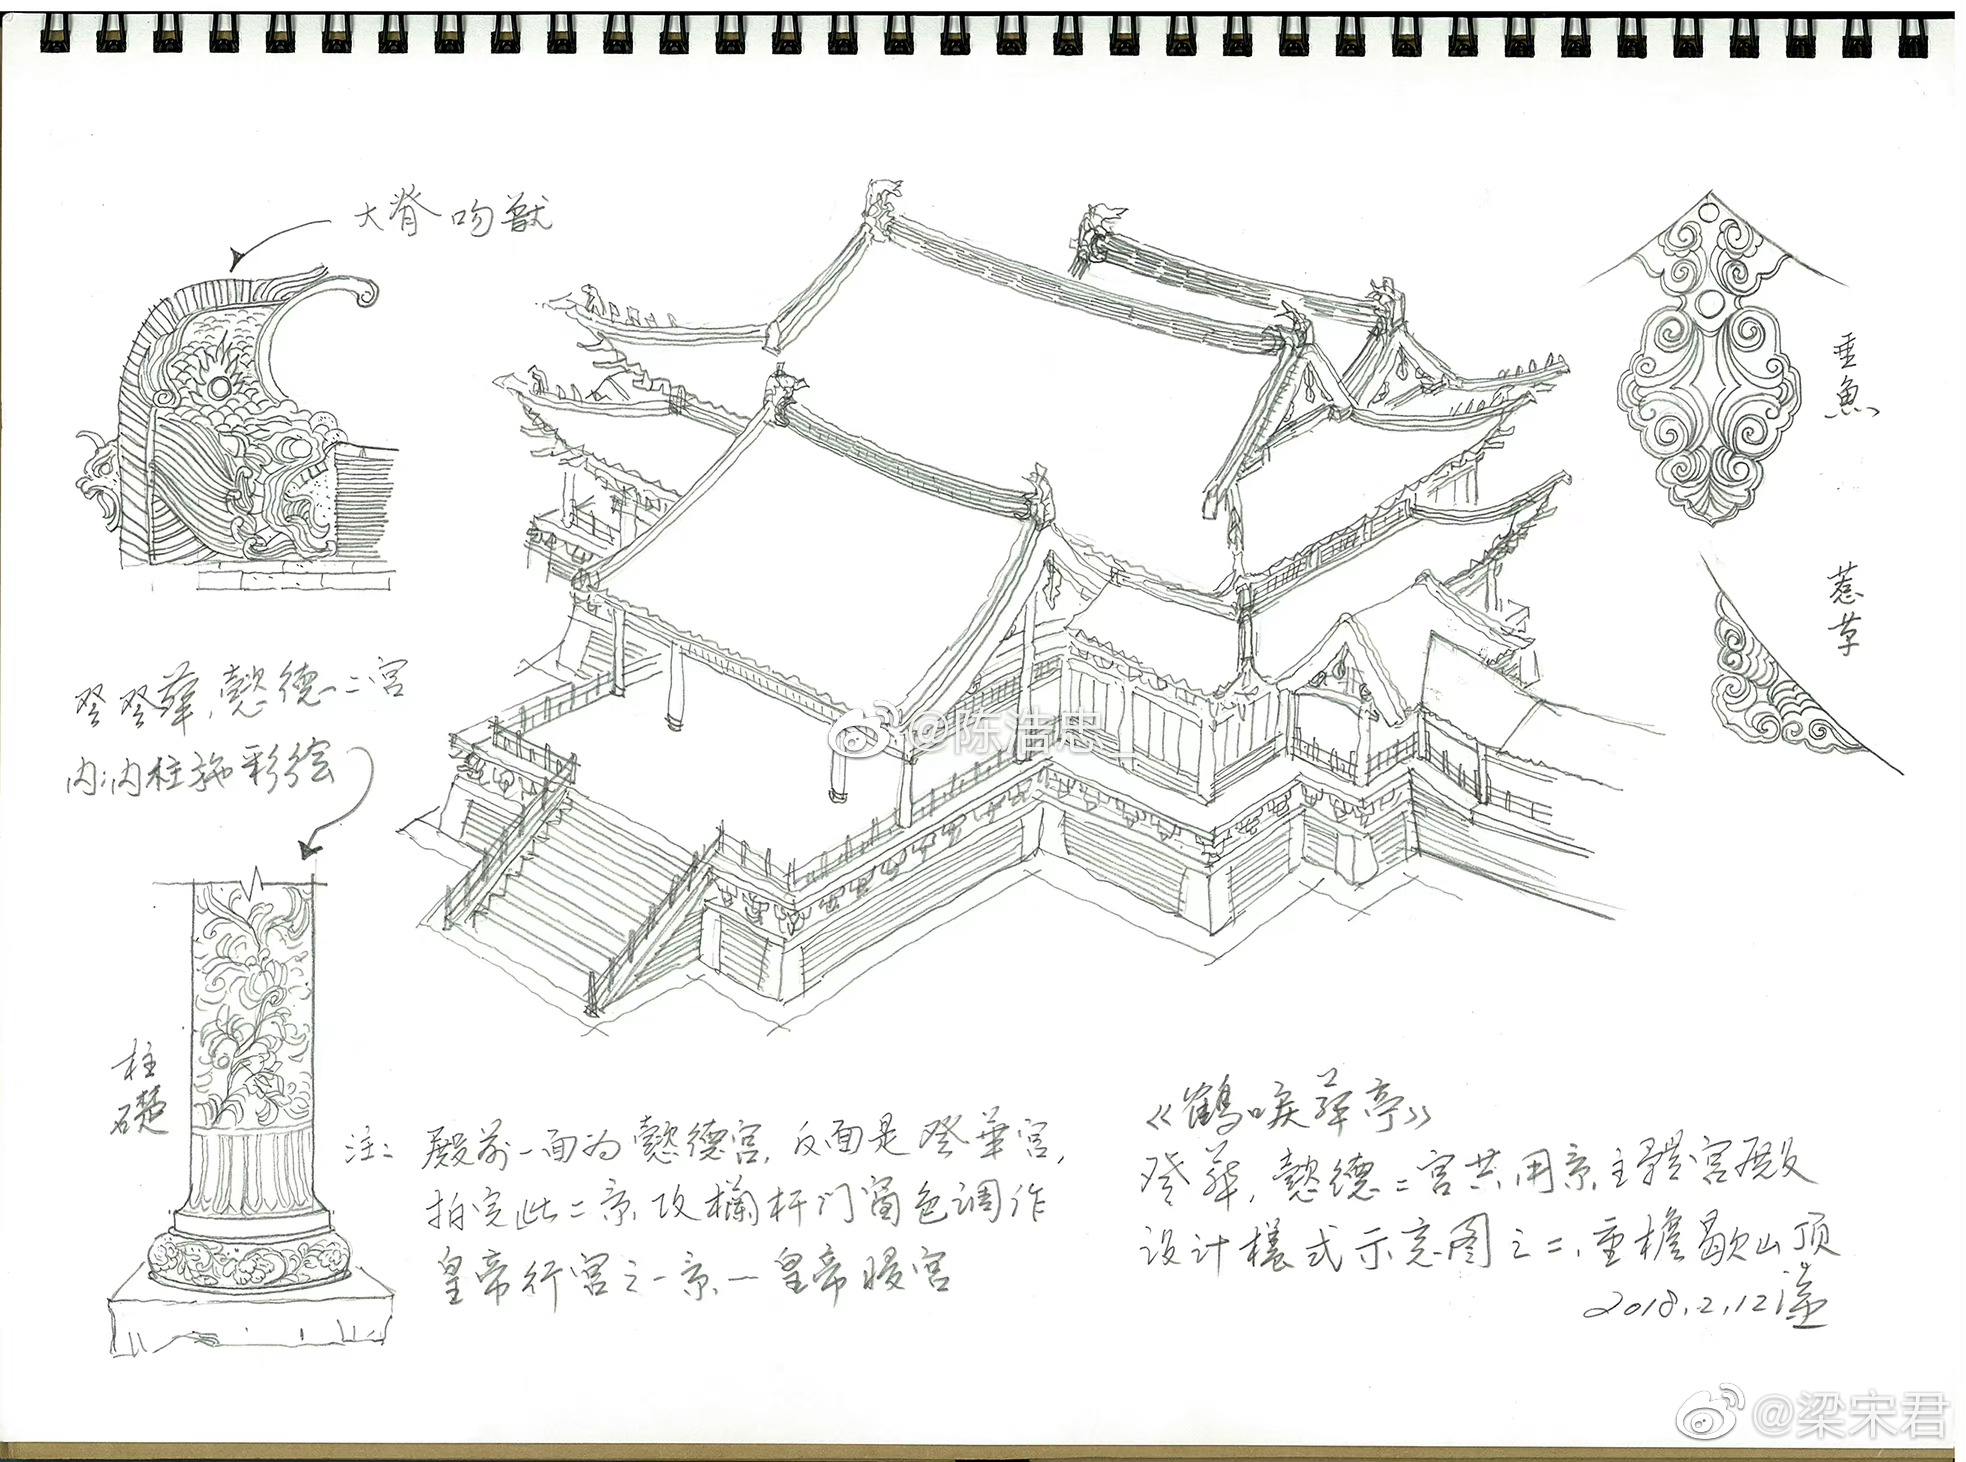 大脊吻獸
垂魚
惹草
懿德二宮
内:内柱施彩绘
柱礎
注: 殿前一面为懿德宮,反面是登華宮,
拍完此二景改欄杆门窗色调作
皇帝行宮之一景—皇帝寝宮
《鹤唳華亭》
登華,懿德二宮共用景主體宮殿
设计樣式示意图之二,重檐歇山顶
2018.2.12
@陈浩忠_
@梁宋君